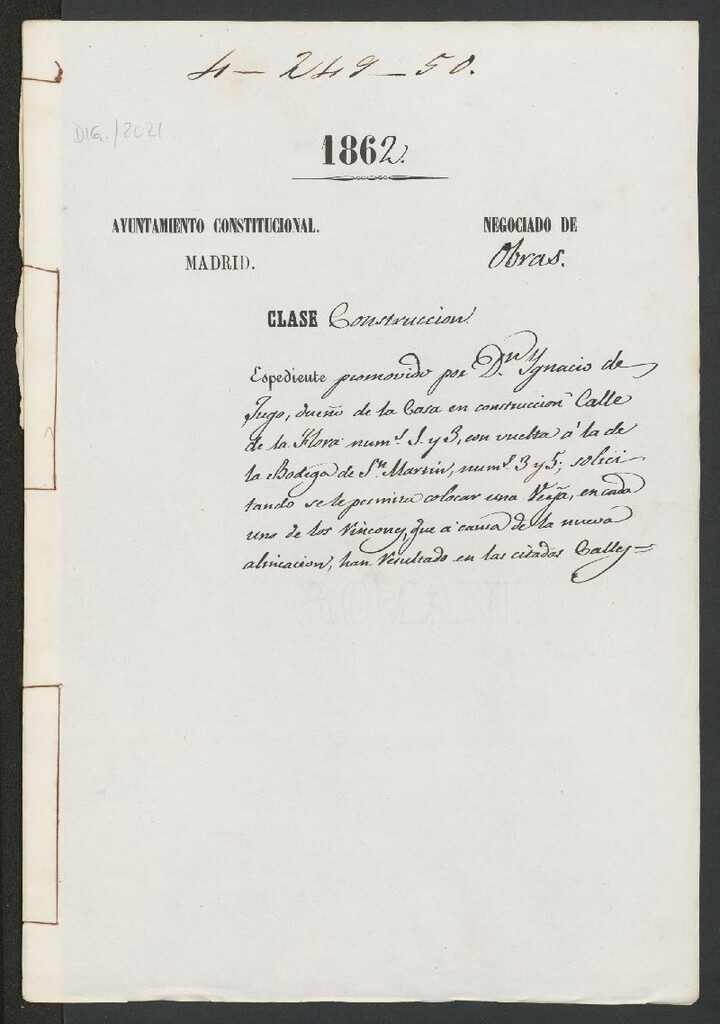 4 - 249 - 50.
DIG./2021
1862.
AYUNTAMIENTO CONSTITUCIONAL.
MADRID.
NEGOCIADO DE
Obras.
CLASE Construccion.
Espediente promovido por Dn. Ygnacio de
Jugo, dueño de la Casa en construccion Calle
de la Flora nums. 1. y 3, con vuelta á la de
la Bodega de Sn. Martin, nums. 3 y 5; solici
tando se le permita colocar una Verja, en cada
uno de los rincones, que á causa de la nueva
alineacion, han resultado en las citadas Calles=